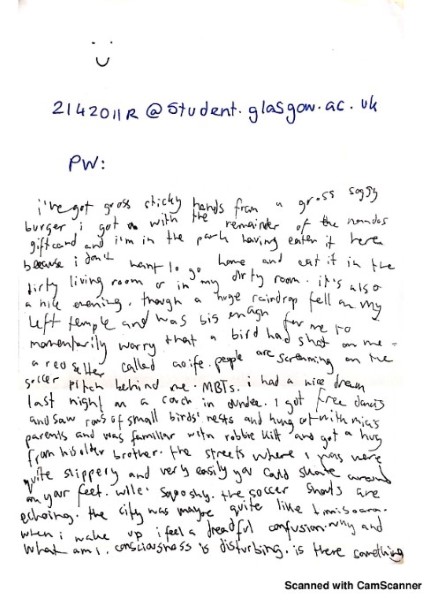 2142011R@student.glasgow.ac.uk
PW:
i've got gross sticky hands from a gross soggy
burger i got with the remainder of the nandos
giftcard and i'm in the park having eaten it here
because i don't want to go home and eat it in the
dirty living room or in my dirty room. it's also
a nice evening. though a huge raindrop fell on my
left temple and was big enough for me to
momentarily worry that a bird had shat on me.
a red setter called aoife. people are screaming on the
soccer pitch behind me. MBTs. i had a nice dream
last night on a couch in dundee. I got free
and saw rows of small birds' nests and hung out with
parents and was familiar with robbie and got a hug
from his older brother. the streets where i was were
quite slippery and very easily you could skate around
on your feet. squooshy. the soccer shouts are
echoing. the city was maybe quite like
when i wake up i feel a dreadful confusion. why and
what am i. consciousness is disturbing. is there something
Scanned with CamScanner